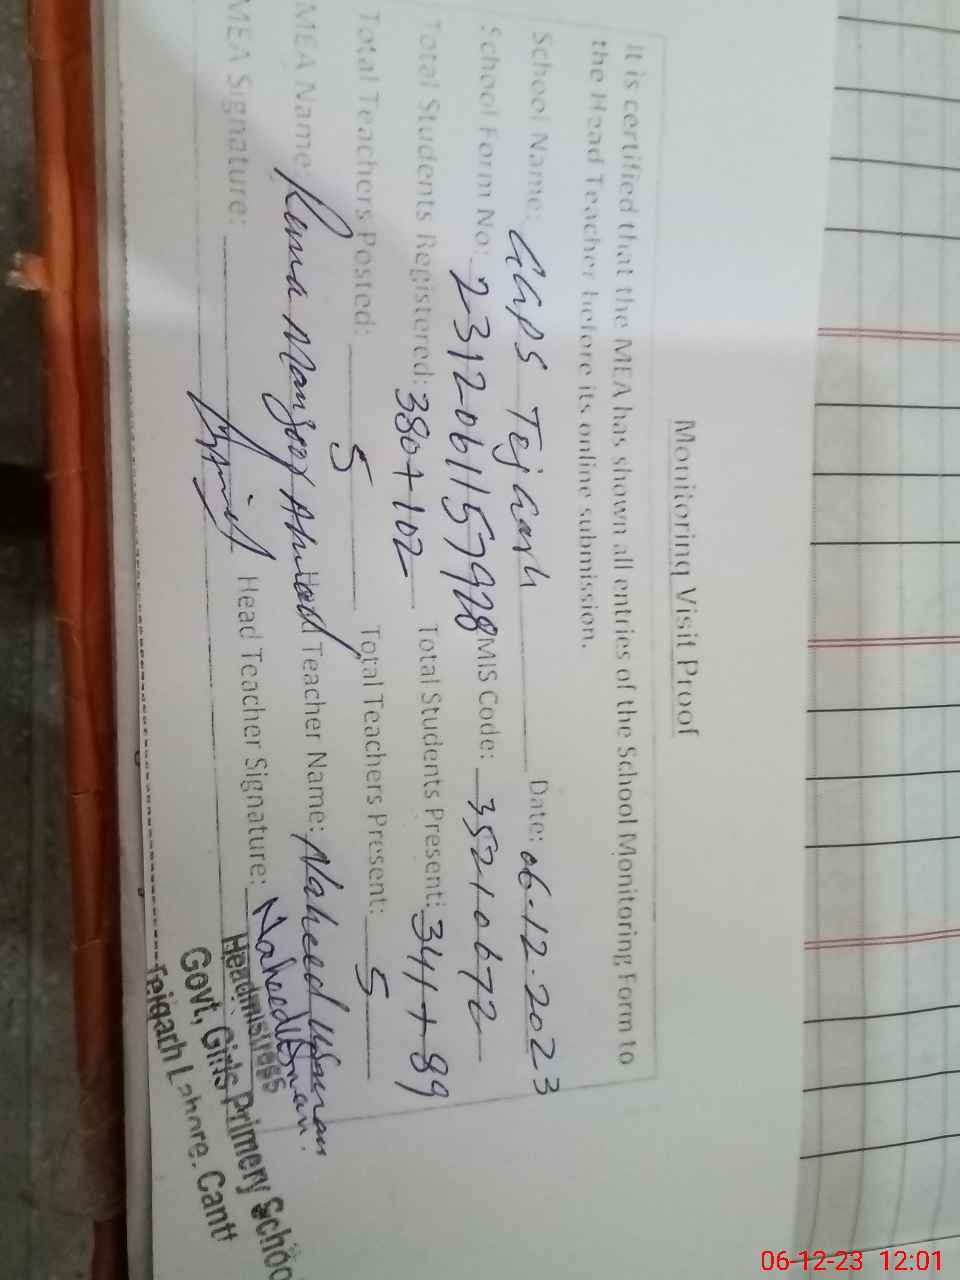 Monitoring Visit Proof
It is certified that the MEA has shown all entries of the School Monitoring Form to
the Head Teacher before its online submission.
School Name: GGPS Tej Garh Date: 06-12-2023
School Form No: 2312061157928 MIS Code: 35210672
Total Students Registered: 380+102 Total Students Present: 344+89
Total Teachers Posted: 5 Total Teachers Present: 5
MEA Name: Rana Manzoor Ahmad Head Teacher Name: Naheed Usman
MEA Signature: Head Teacher Signature: Naheed Usman.
Headmistress
Govt, Girls Primery School
Tejgarh Lahore. Cantt
06-12-23 12:01